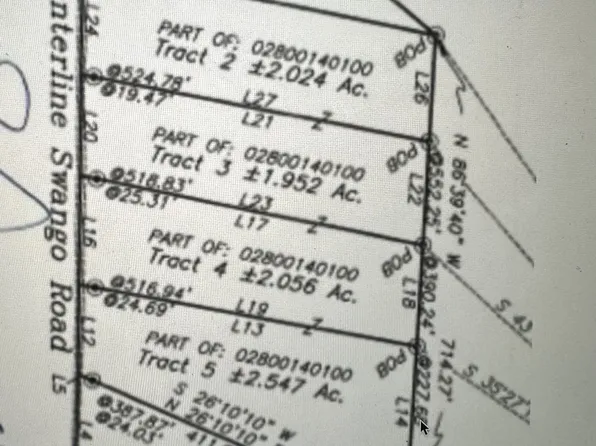 L24
PART OF: 02800140100
Tract 2 ±2.024 Ac.
POB
L26
@524.78'
@19.47'
L27
L21
Z
L20
N 86°39'40" W
PART OF: 02800140100
Tract 3 ±1.952 Ac.
POB
@552.25'
L22
@518.83'
@25.31'
L23
L17
Z
nterline Swango Road
L16
PART OF: 02800140100
Tract 4 ±2.056 Ac.
POB
@390.24'
L18
S 43
@516.94'
@24.69'
L19
L13
Z
L12
PART OF: 02800140100
Tract 5 ±2.547 Ac.
POB
714.27'
S 35°27'
L14
L5
S 26°10'10" W
N 26°10'10"
411
@387.87'
@24.03'
L4